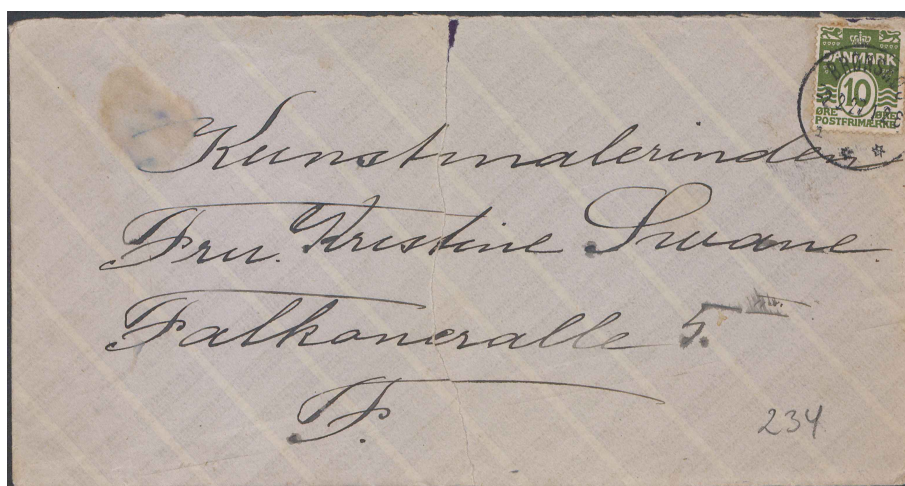 DANMARK
10
ØRE ØRE
POSTFRIMÆRKE
Kunstmalerinden,
Fru. Kristine Swane.
Falkoneralle 5.
F.
234